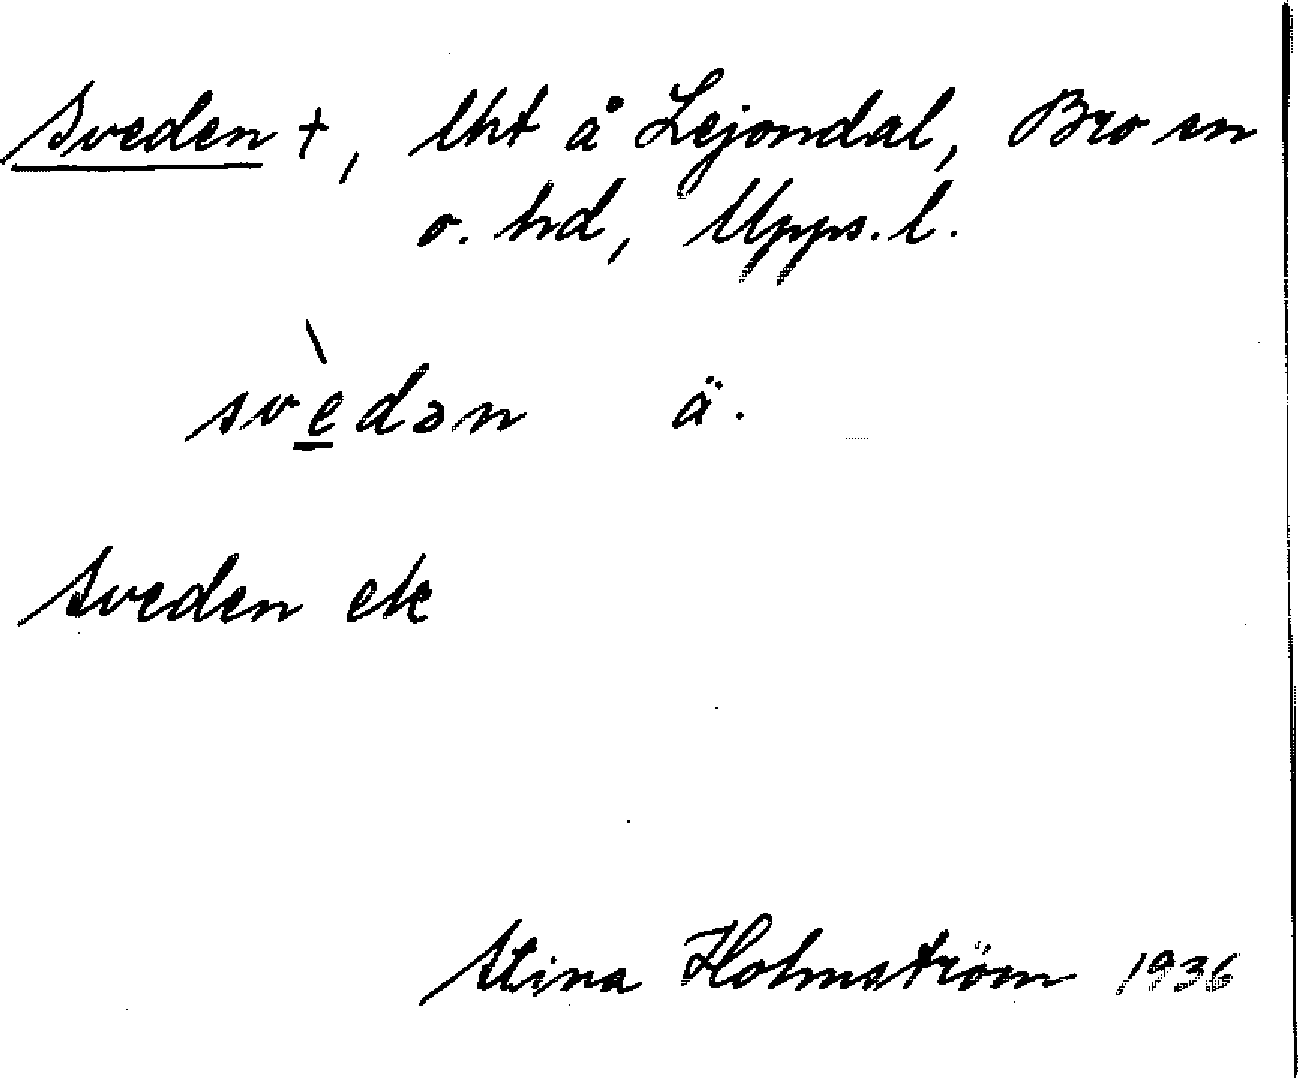 Sveden +, lht å Lejondal, Bro sn
o. hd, Upps. l.
svèdən ä.
Sveden ek
Stina Holmström 1936